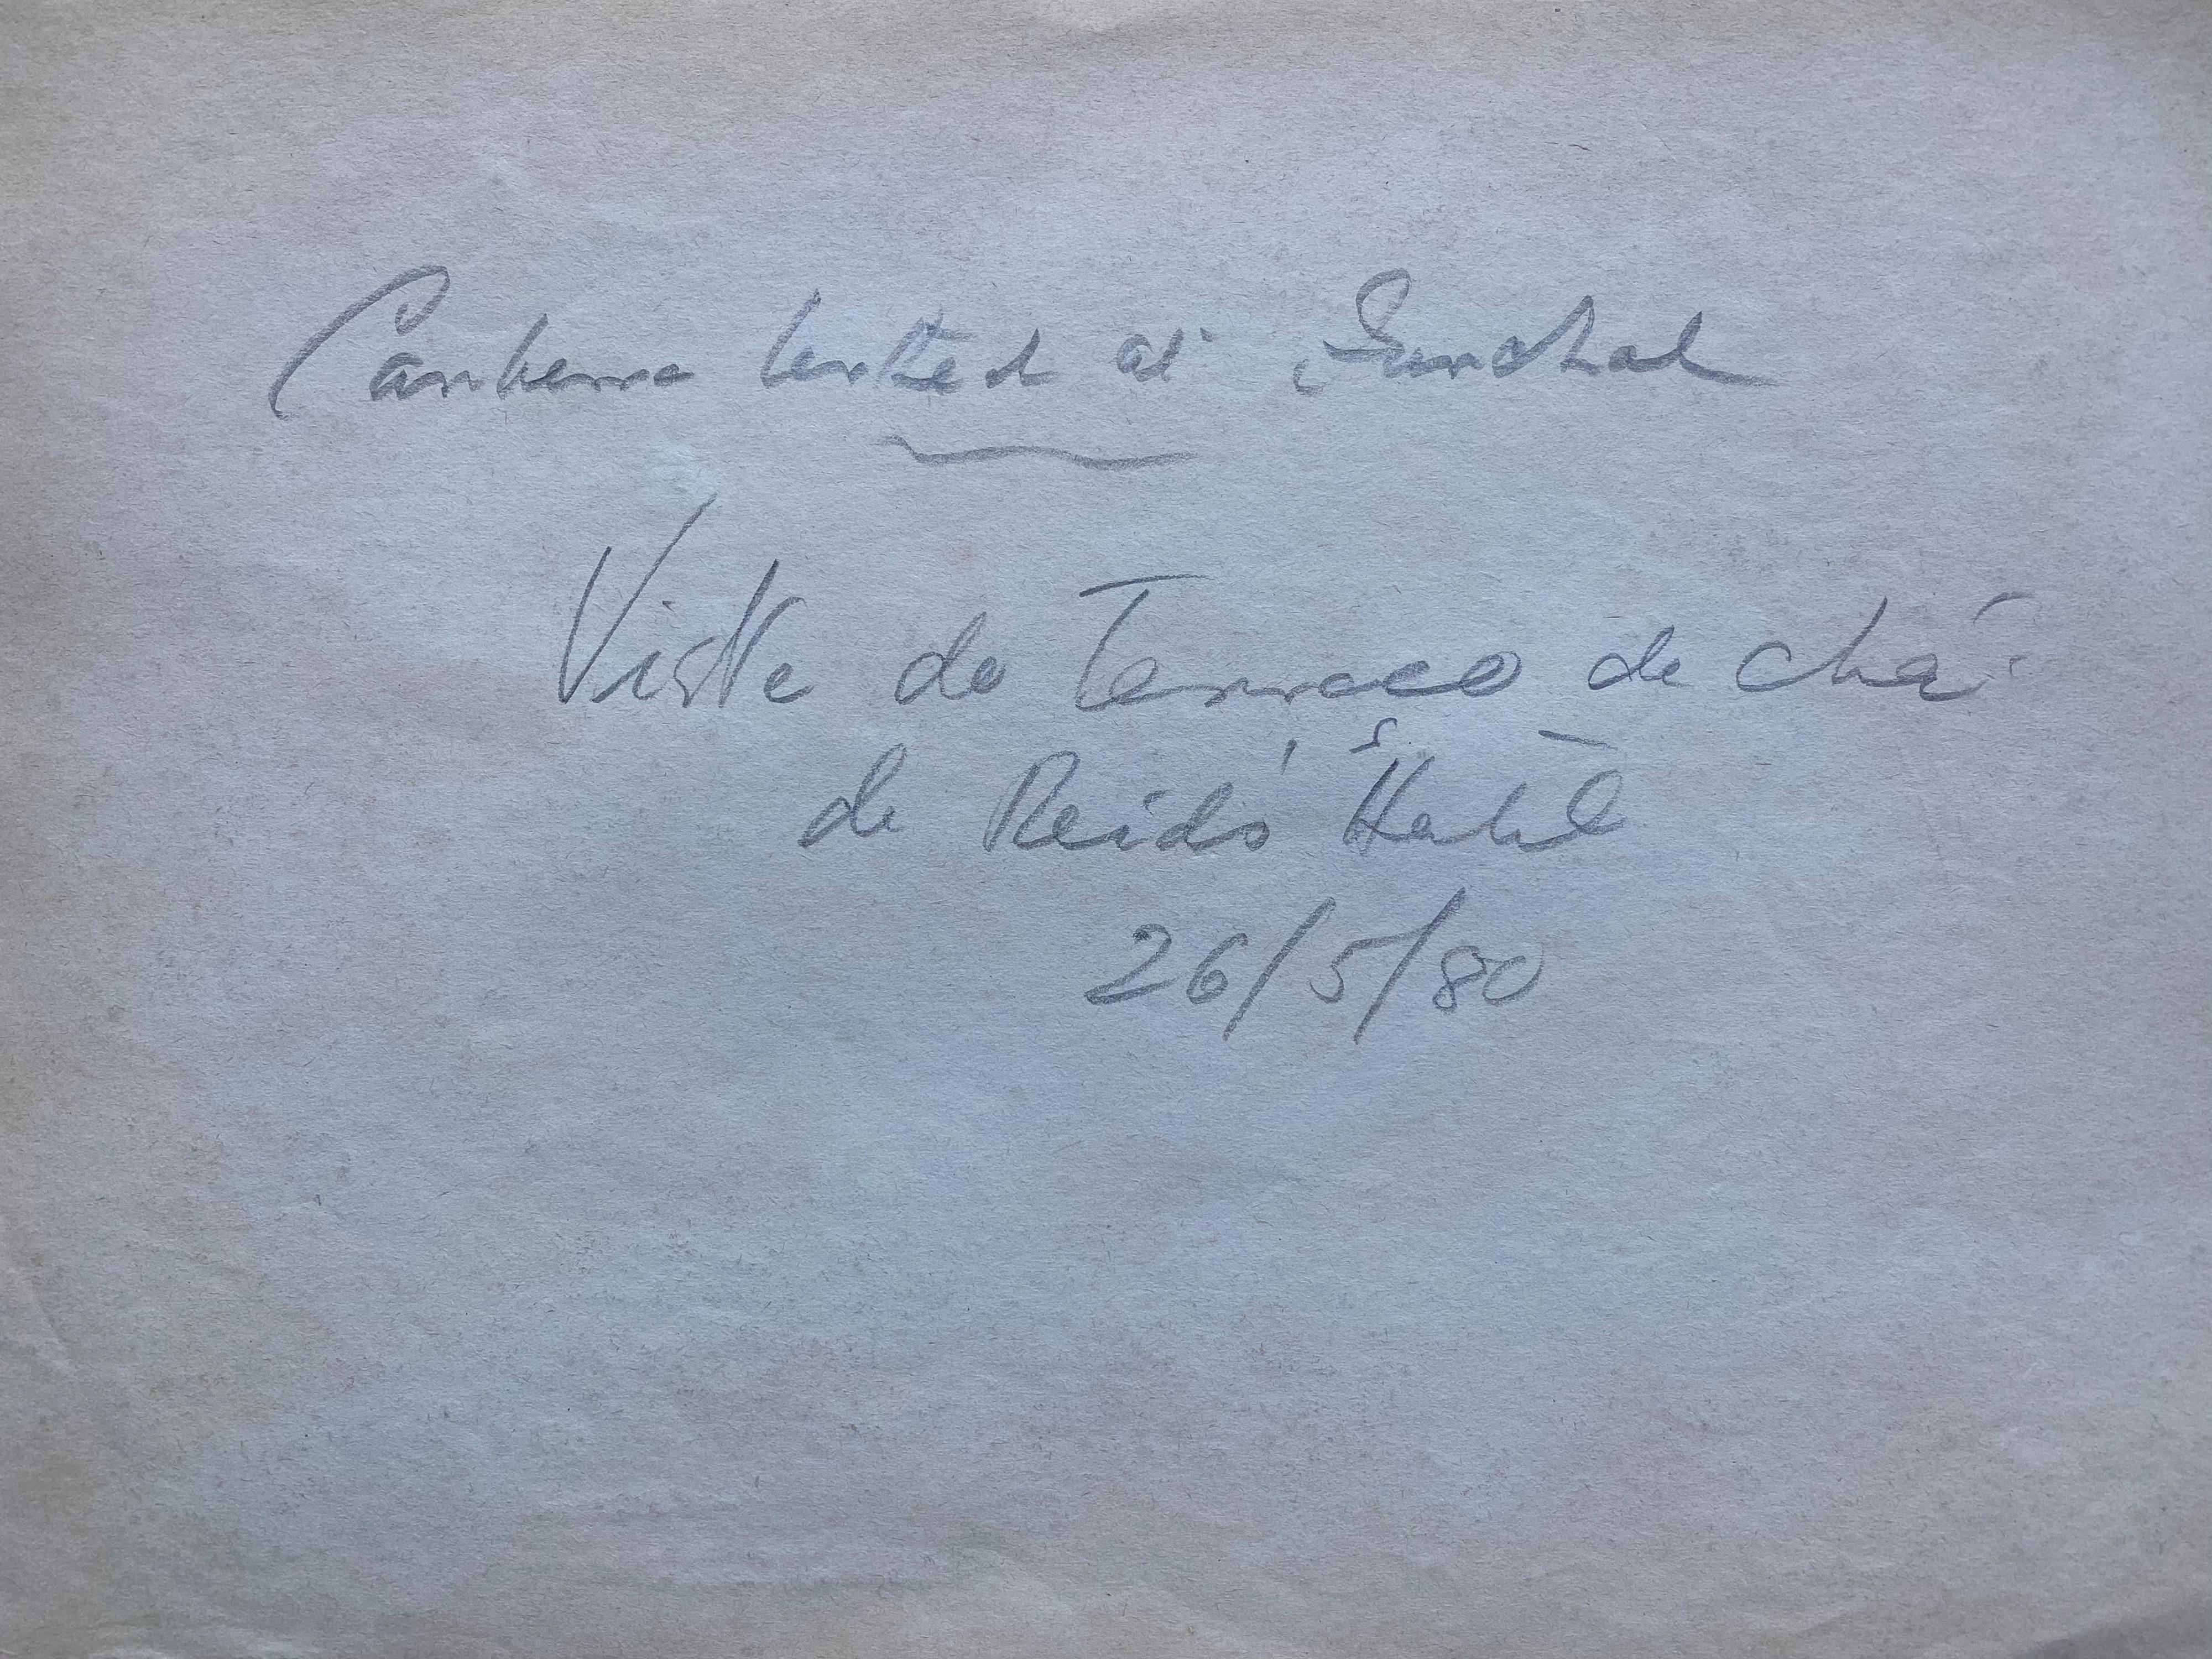 Canberra berthed at Funchal
Vista do Terraço de chá
de Reid's Hotel
26/5/80